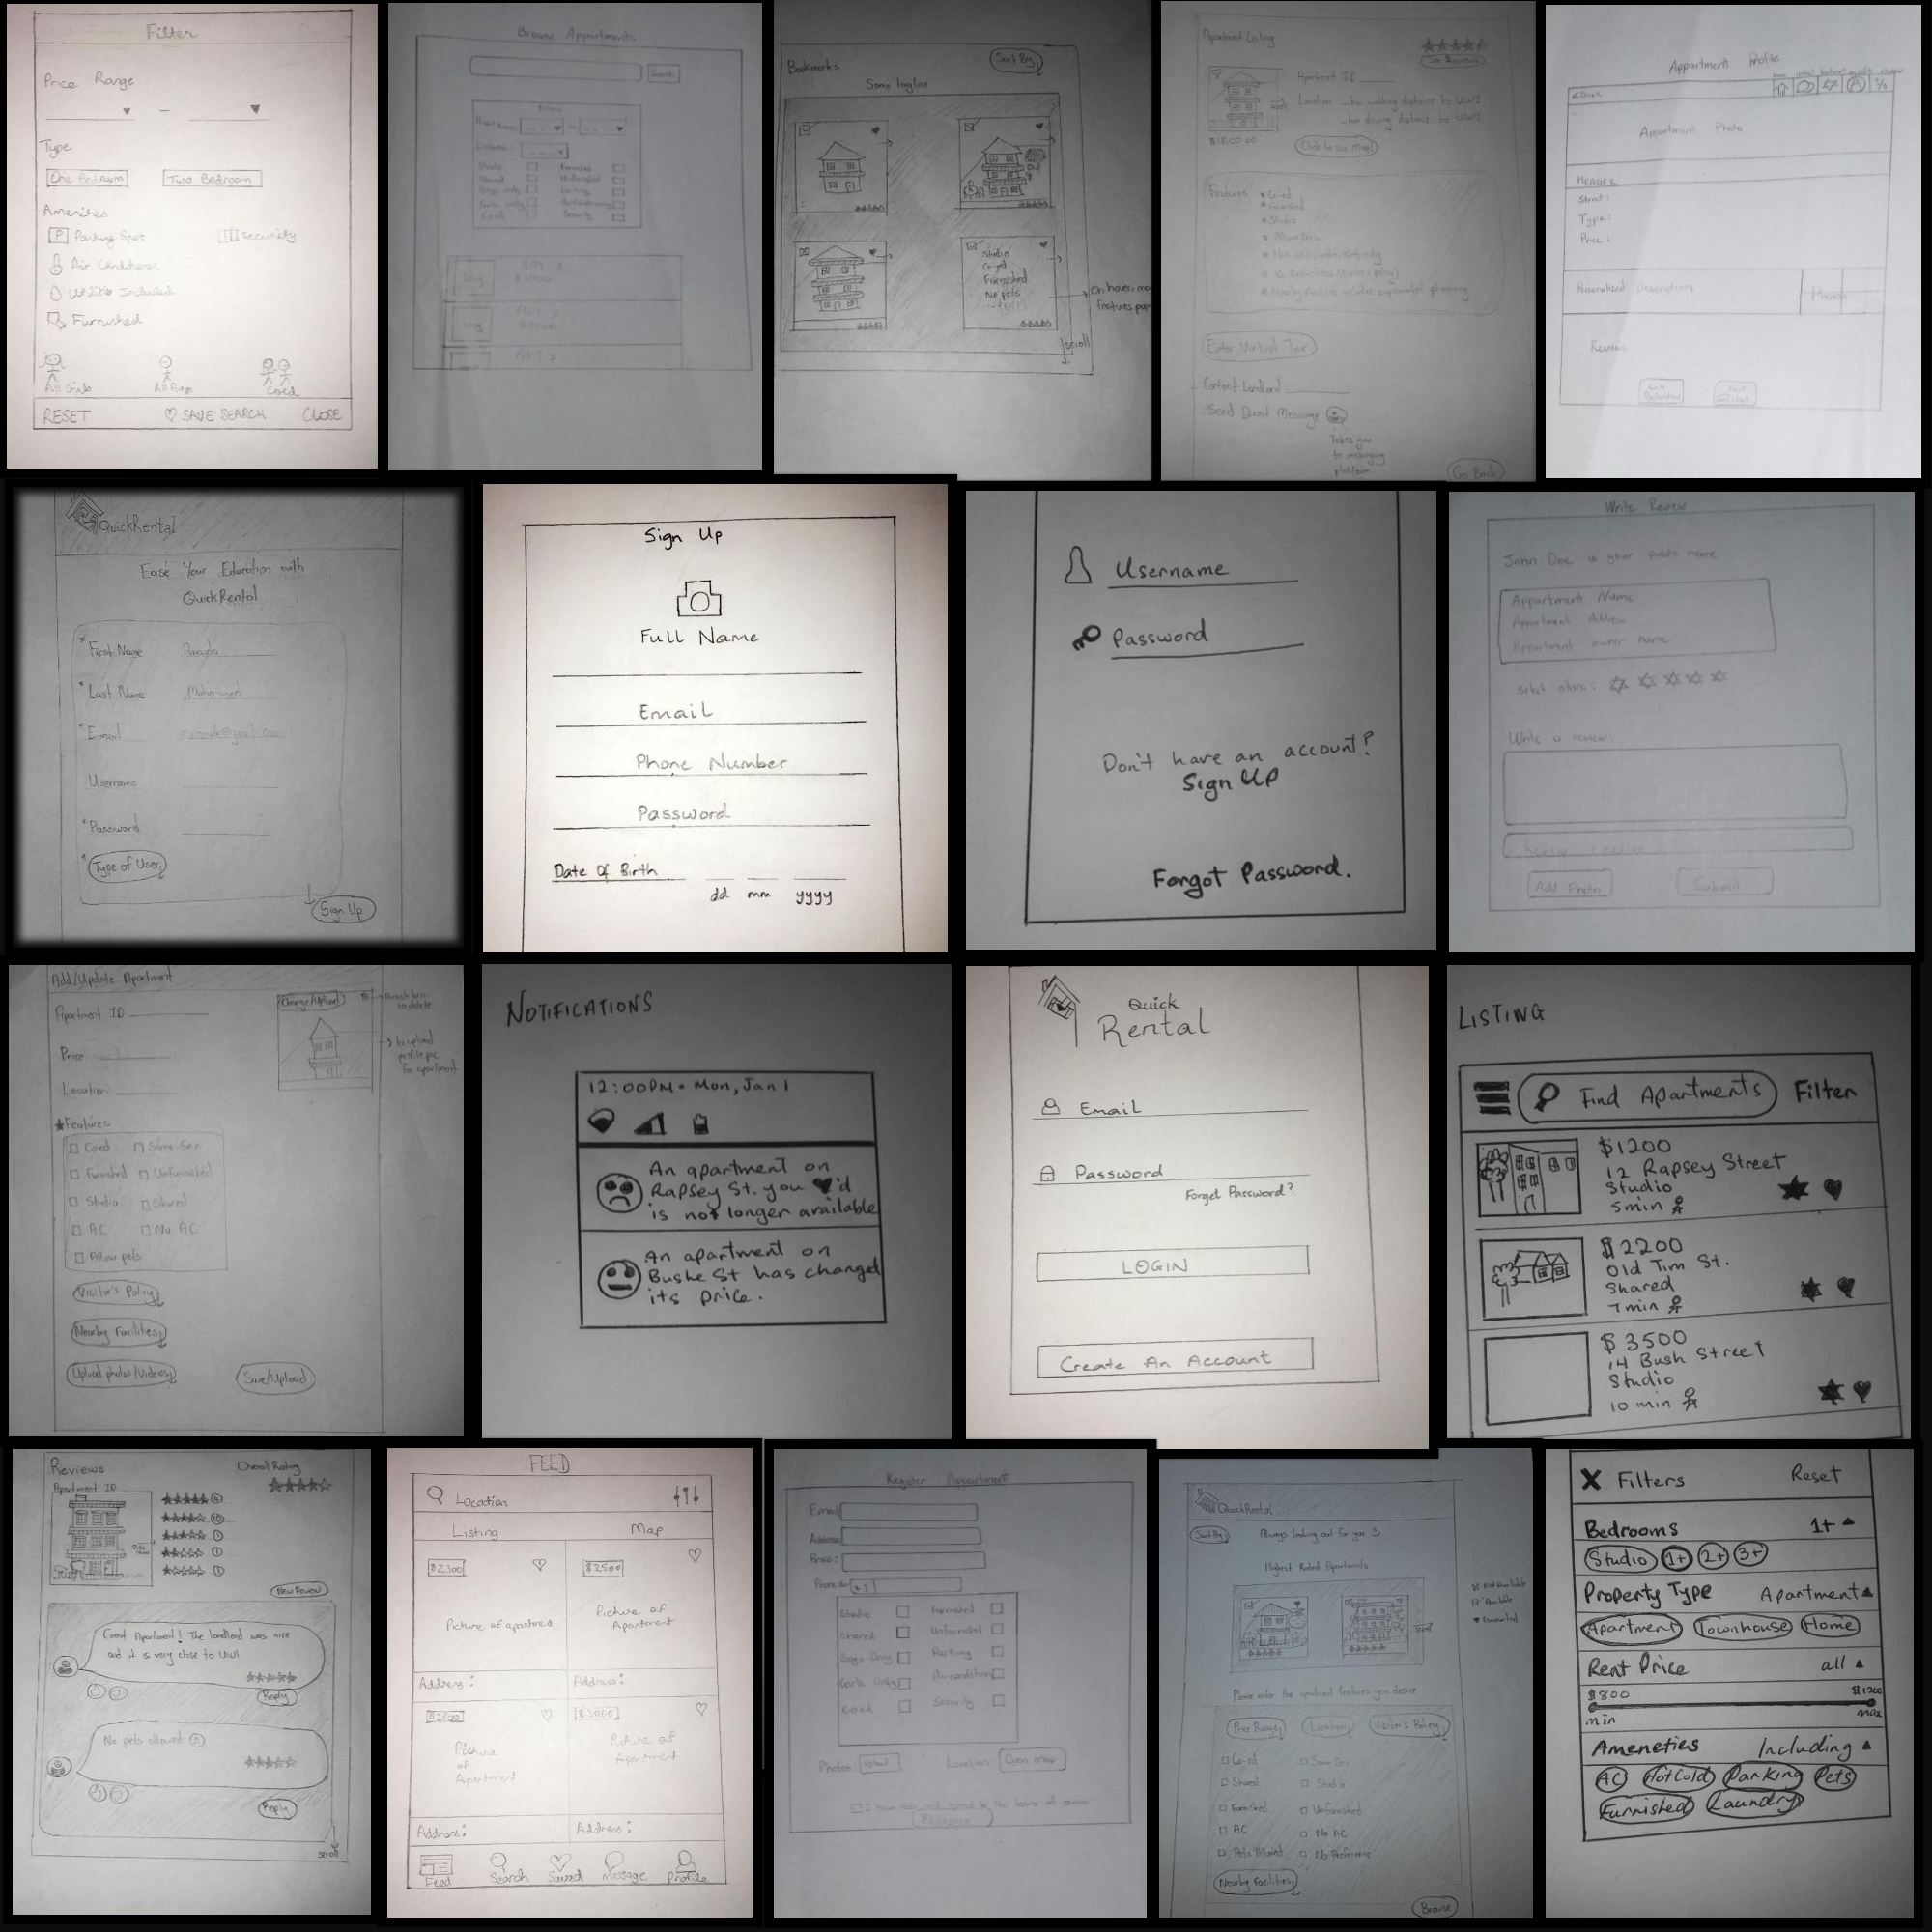 Filter
Price Range
Type
One Bedroom Two Bedroom
Amenities
P Parking Spot Security
Air Conditioner
Utilities Included
Furnished
All Girls All Boys Coed
RESET ♡ SAVE SEARCH CLOSE
Browse Appartments
Search
Bookmarks
Sort By
Some tagline
Studio
Co-ed
Furnished
No pets
On hover, mo
features pop
scroll
Apartment Listing
Apartment ID
Location
km walking distance to UWI
km driving distance to UWI
Click to see map
Features
Co-ed
Furnished
Studio
Enter Virtual Tour
Contact Landlord
Send Direct Message
Takes you
to messaging
platform
Go Back
Appartment Profile
Appartment Photo
HEADER
Street:
Type:
Price:
Personalized Description
Reviews
QuickRental
Ease Your Education with
QuickRental
*First Name
*Last Name
*Email
Username
*Password
*Type of User
Sign Up
Sign Up
Full Name
Email
Phone Number
Password
Date Of Birth
dd mm yyyy
Username
Password
Don't have an account?
Sign Up
Forgot Password.
Write Review
John Doe is your public name
Appartment Name
Appartment Address
Appartment owner name
select stars:
Write a review:
Add Photo Submit
Add/Update Apartment
Apartment ID
Change/Upload
to delete
Price
to upload
profile pic
for apartment
Location
★Features
Coed Same-Sex
Furnished Unfurnished
Studio Shared
AC No AC
Allow pets
Visitor's Policy
Nearby Facilities
Upload photos/Videos Save/Upload
NOTIFICATIONS
12:00PM • Mon, Jan 1
An apartment on
Rapsey St. you ♥'d
is not longer available
An apartment on
Bushe St has changed
its price.
Quick
Rental
Email
Password
Forget Password?
LOGIN
Create An Account
LISTING
Find Apartments Filter
$1200
12 Rapsey Street
Studio
5min
$2200
Old Tim St.
Shared
7min
$3500
14 Bush Street
Studio
10 min
Reviews
Overall Rating
Apartment ID
New Review
Great Apartment! The landlord was nice
and it is very close to UWI
Reply
No pets allowed
Reply
scroll
FEED
Location
Listing Map
$2300 $2500
Picture of apartment
Picture of
Apartment
Address: Address:
$3000
Picture
of
Apartment
Picture of
Apartment
Address: Address:
Feed Search Saved Message Profile
Register Appartment
Email
Address
Price:
Studio Furnished
Shared Unfurnished
Boys Only Parking
Girls Only Aircondition
Coed Security
Photos: Upload Location: Open map
QuickRental
Sort By
Always looking out for you
Highest Rated Apartments
Please enter the apartment features you desire
Price Range Location Visitor's Policy
Co-ed Same Sex
Shared Studio
Furnished Unfurnished
AC No AC
Pets Allowed No Preference
Nearby Facilities
Browse
X Filters Reset
Bedrooms 1+
Studio 1+ 2+ 3+
Property Type Apartment
Apartment Townhouse Home
Rent Price all
$800 $1200
min max
Ameneties Including
AC Hot Cold Parking Pets
Furnished Laundry